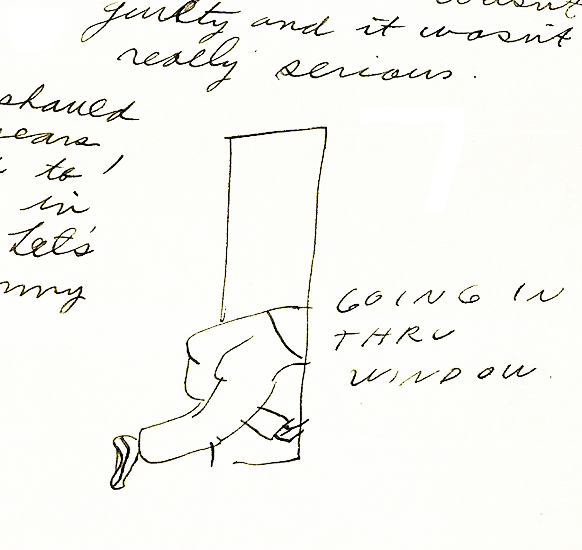 guilty and it wasn't
really serious.
shaved
years
to !
in
Let's
GOING IN
THRU
WINDOW.